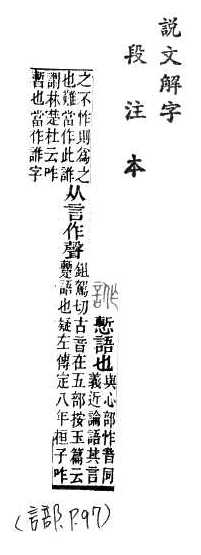 說文解字
段注本
慙語也
與心部怍音同
義近論語其言
之不怍則爲之
也難當作此
从言作聲
鉏駕切古音在五部按玉篇云
語也疑左傳定八年桓子咋
謂林楚杜云咋
暫也當作字
(言部.P.97)